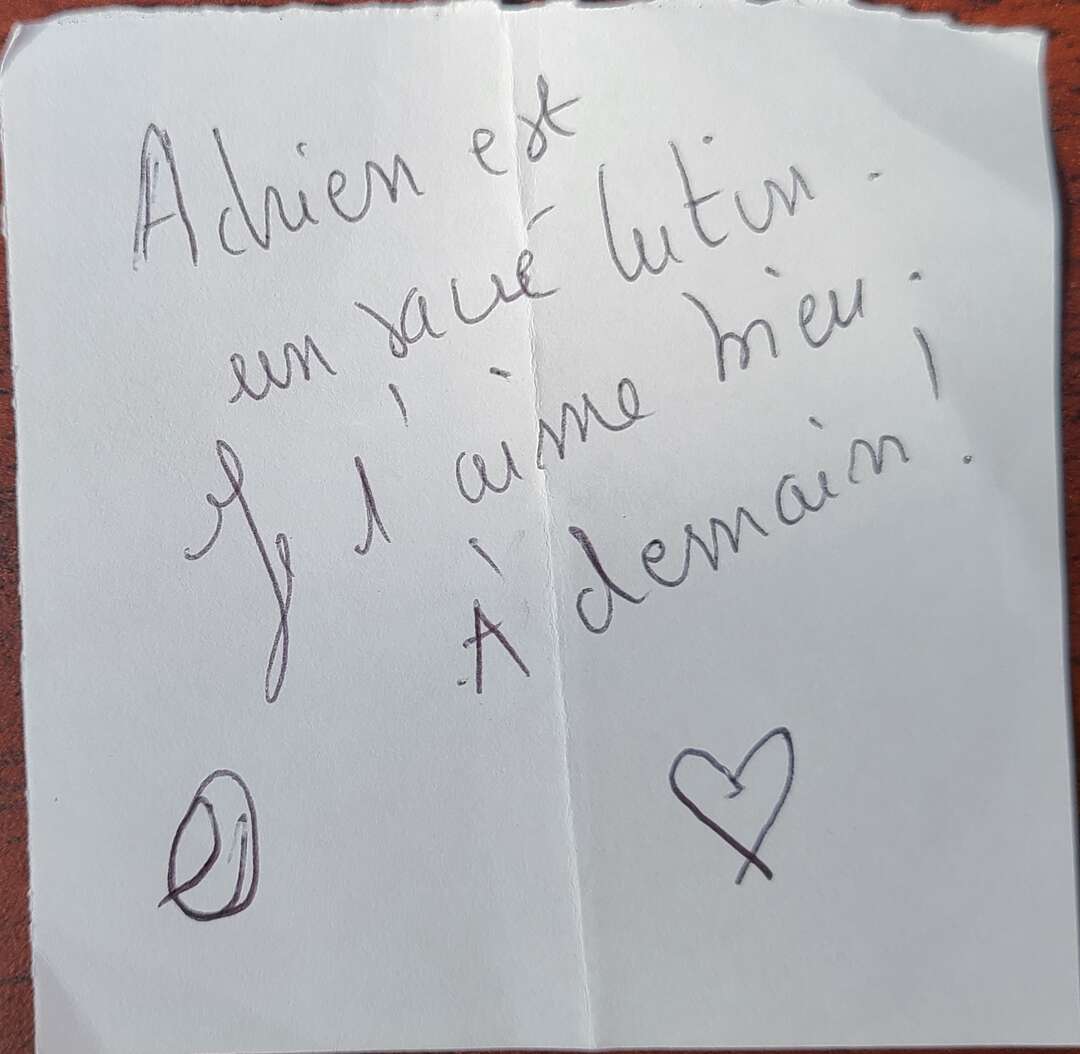 Adrien est
un sacré lutin.
Je l'aime bien.
À demain !